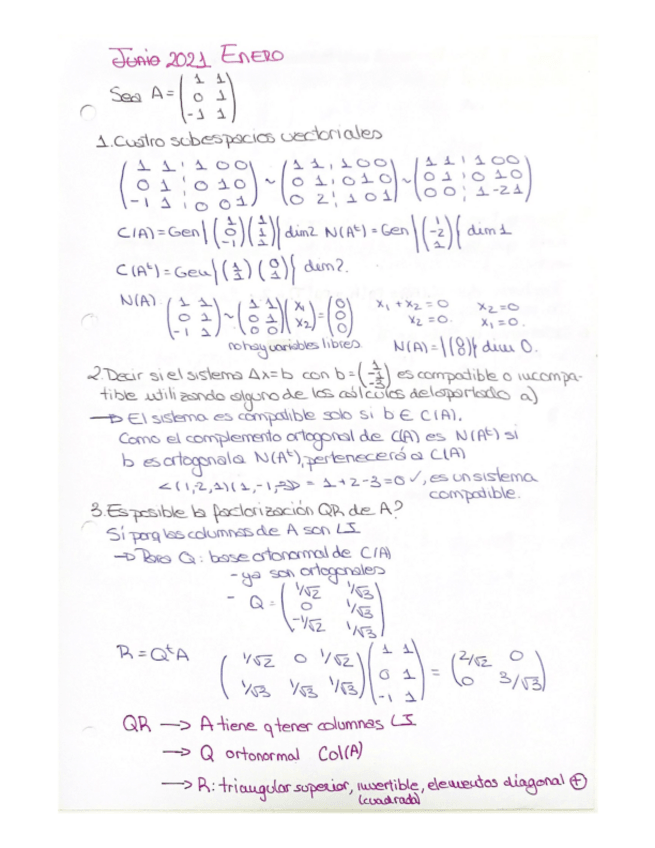 Junio 2021 ENERO
Sea A = ( 1 1 ; 0 1 ; -1 1 )
1. Cuatro subespacios vectoriales
( 1 1 ¦ 1 0 0 ; 0 1 ¦ 0 1 0 ; -1 1 ¦ 0 0 1 ) ~ ( 1 1 ¦ 1 0 0 ; 0 1 ¦ 0 1 0 ; 0 2 ¦ 1 0 1 ) ~ ( 1 1 ¦ 1 0 0 ; 0 1 ¦ 0 1 0 ; 0 0 ¦ 1 -2 1 )
C(A) = Gen{ (1 0 -1) (1 1 1) } dim 2 N(Aᵗ) = Gen{ (1 -2 1) } dim 1
C(Aᵗ) = Gen{ (1 1) (0 1) } dim 2.
N(A) ( 1 1 ; 0 1 ; -1 1 ) ~ ( 1 1 ; 0 1 ; 0 0 ) ( x₁ x₂ ) = ( 0 0 0 ) x₁ + x₂ = 0 x₂ = 0
x₂ = 0. x₁ = 0.
no hay variables libres N(A) = { (0 0) } dim 0.
2. Decir si el sistema Ax=b con b = ( 1 -1 -3 ) es compatible o incompa-
tible utilizando alguno de los cálculos del apartado a)
→ El sistema es compatible solo si b ∈ C(A).
Como el complemento ortogonal de C(A) es N(Aᵗ) si
b es ortogonal a N(Aᵗ), pertenecerá a C(A)
<(1,-2,1)(1,-1,-3)> = 1+2-3=0 ✓, es un sistema
compatible.
3. Es posible la factorización QR de A?
Sí porq las columnas de A son LI
→ Para Q: base ortonormal de C(A)
- ya son ortogonales
- Q = ( 1/√2 1/√3 ; 0 1/√3 ; -1/√2 1/√3 )
R = QᵗA ( 1/√2 0 1/√2 ; 1/√3 1/√3 1/√3 ) ( 1 1 ; 0 1 ; -1 1 ) = ( 2/√2 0 ; 0 3/√3 )
QR → A tiene q tener columnas LI
→ Q ortonormal Col(A)
→ R: triangular superior, invertible, elementos diagonal ⊕
(cuadrada)